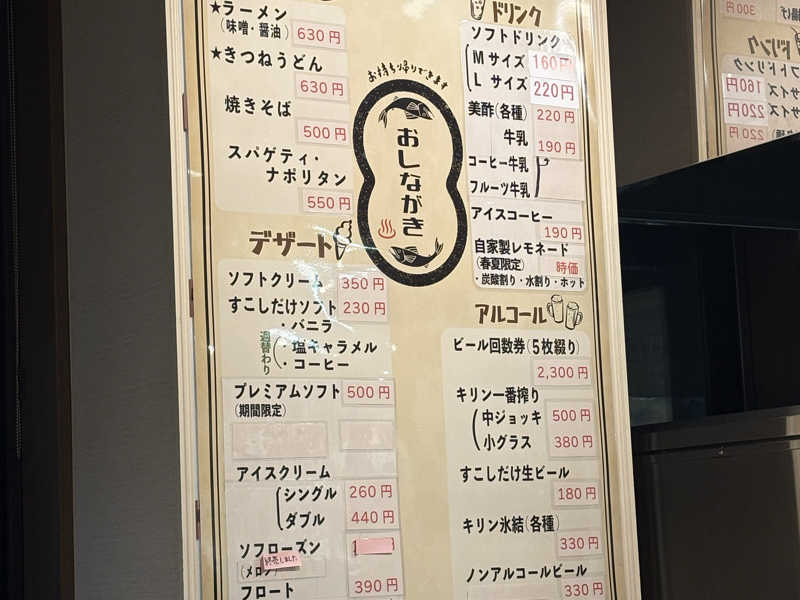 ★ラーメン
(味噌・醤油) 630円
★きつねうどん
630円
焼きそば
500円
スパゲティ・
ナポリタン
550円
お持ち帰りできます
おしながき
デザート
ソフトクリーム 350円
すこしだけソフト 230円
・バニラ
週替わり
・塩キャラメル
・コーヒー
プレミアムソフト 500円
(期間限定)
アイスクリーム
シングル 260円
ダブル 440円
ソフローズン
終売しました
(メロン)
フロート 390円
ドリンク
ソフトドリンク
Mサイズ 160円
Lサイズ 220円
美酢(各種) 220円
牛乳 190円
コーヒー牛乳
フルーツ牛乳
アイスコーヒー
190円
自家製レモネード
(春夏限定) 時価
・炭酸割り・水割り・ホット
アルコール
ビール回数券(5枚綴り)
2,300円
キリン一番搾り
中ジョッキ 500円
小グラス 380円
すこしだけ生ビール
180円
キリン氷結(各種)
330円
ノンアルコールビール
330円
300円
ドリンク
フトドリンク
サイズ 160円
サイズ 220円
220円